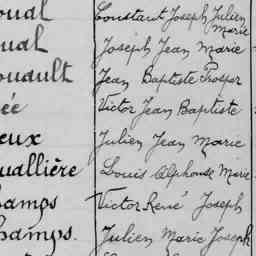 oual Constant Joseph Julien
Marie
oual Joseph Jean Marie
oudault Jean Baptiste Prosper
ée Victor Jean Baptiste
eux Julien Jean Marie
uallière Louis Alphonse Marie
hamps Victor René Joseph
hamps. Julien Marie Joseph